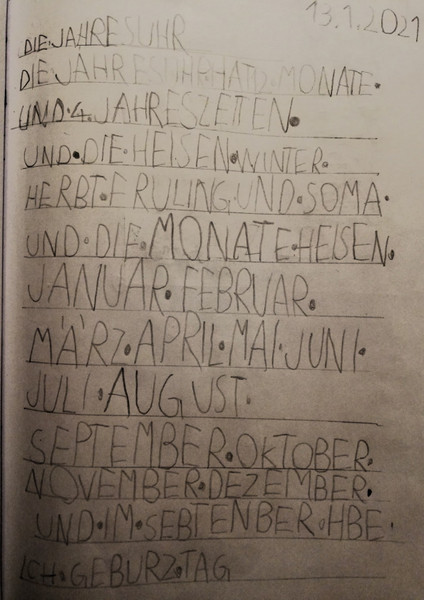 13.1.2021
DIE JAHRESUHR
DIE JAHRESUHR HAT 12 MONATE.
UND.4.JAHRESZEITEN.
UND.DIE.HEISEN.WINTER.
HERBT.FRULING.UND.SOMA.
UND.DIE.MONATE.HEISEN.
JANUAR.FEBRUAR.
MÄRZ.APRIL.MAI.JUNI.
JULI.AUGUST.
SEPTEMBER.OKTOBER.
NOVEMBER.DEZEMBER.
UND.IM.SEBTENBER.HBE.
ICH.GEBURZ.TAG